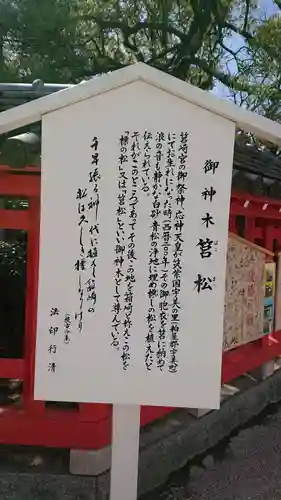 御神木 筥松
はこまつ
筥崎宮の御祭神、応神天皇が筑紫国宇美の里(粕屋郡宇美町)
にてお生れになった時(西暦二〇〇年)その御胞衣を筥に納めて
浪の音も静かな白砂青松の浄地に埋め標しの松を植えたと
伝えられている。
それがこのところであって、その後、この地を箱崎と称えこの松を
「標の松」又は「筥松」といい御神木として尊んでいる。
千早振る神代に植えし箱崎の
松は久しき標なりけり
法印行清